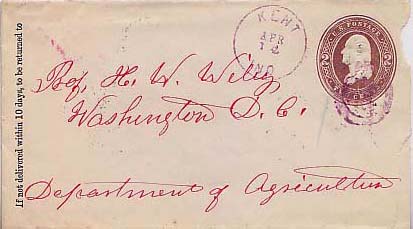 If not delivered within 10 days, to be returned to
KENT
APR
14
IND.
U.S. POSTAGE
2 2
Prof. H. W. Wiley
Washington D. C.
Department of Agricultur